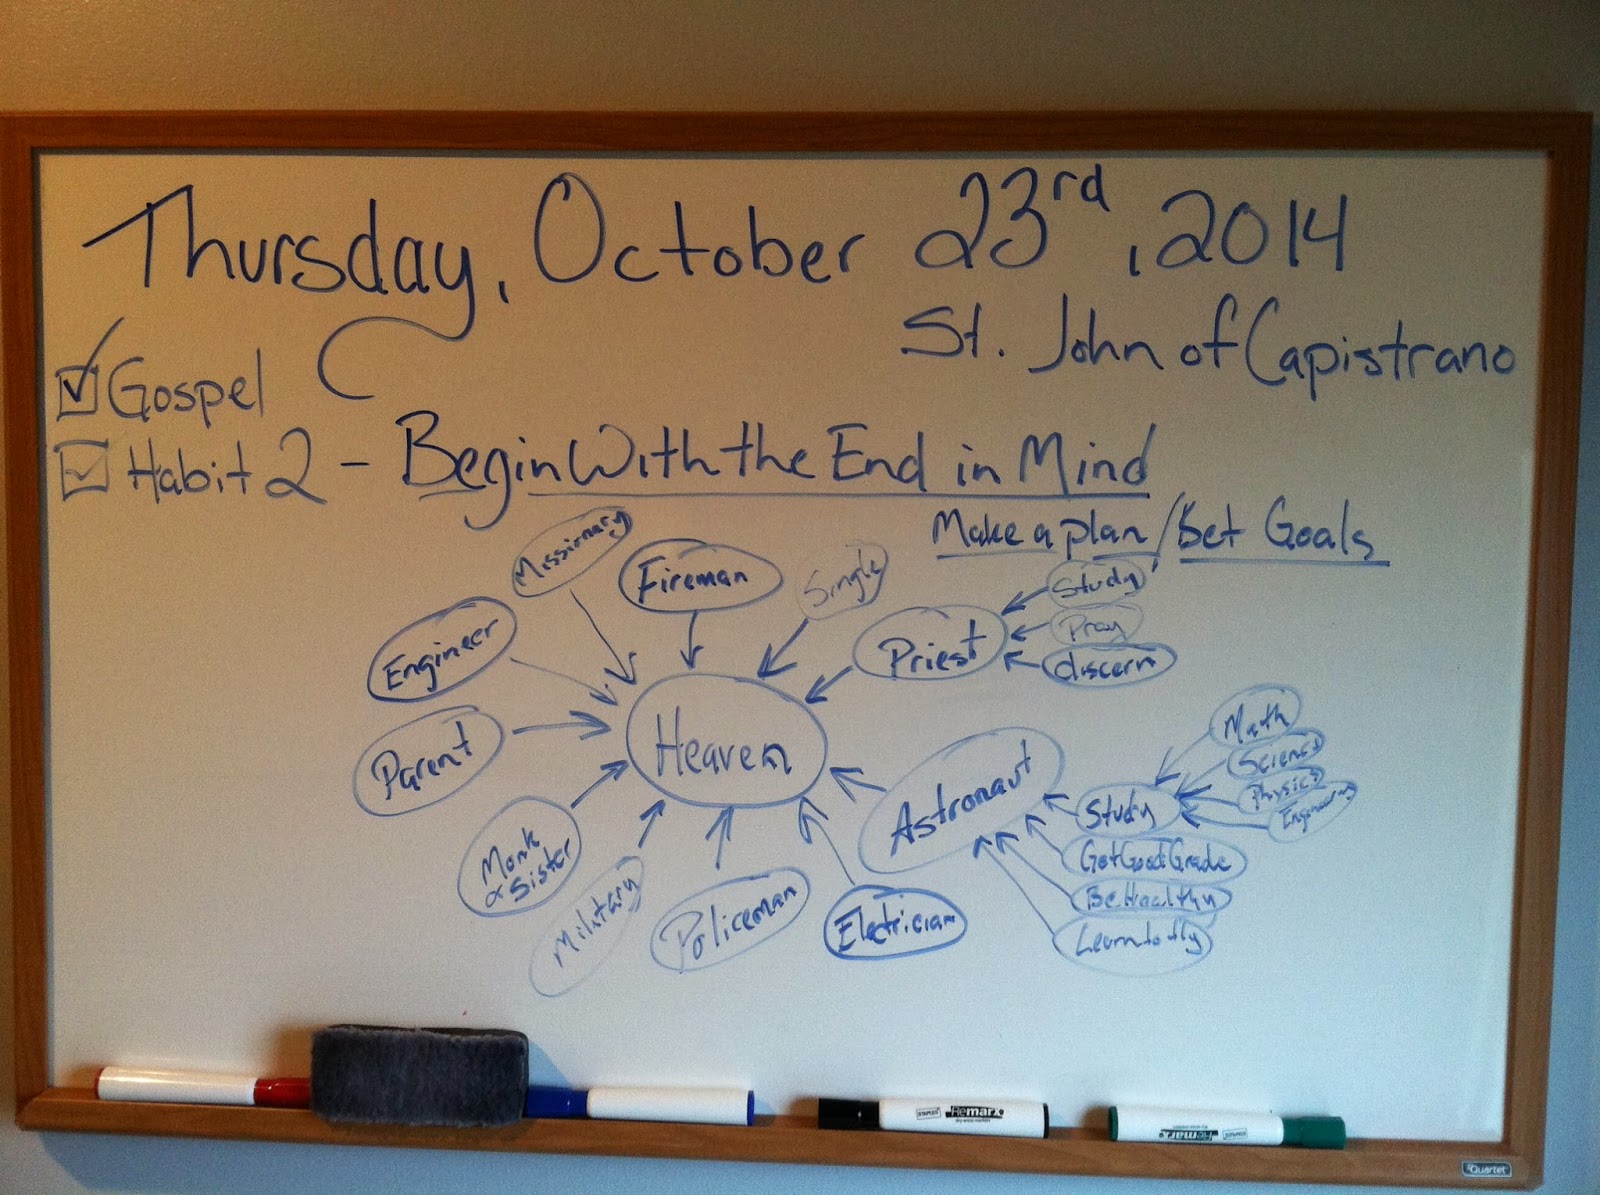 Thursday, October 23rd, 2014
St. John of Capistrano
Gospel
Habit 2 - Begin With the End in Mind
Make a plan / Set Goals
Missionary
Fireman
Single
Study
Pray
discern
Priest
Engineer
Parent
Heaven
Astronaut
Math
Science
Physics
Engineering
Study
Get Good Grade
Be Healthy
Learn to fly
Monk
& Sister
Military
Policeman
Electrician
STAPLES Remarx
dry-erase markers
Remarx STAPLES
Quartet